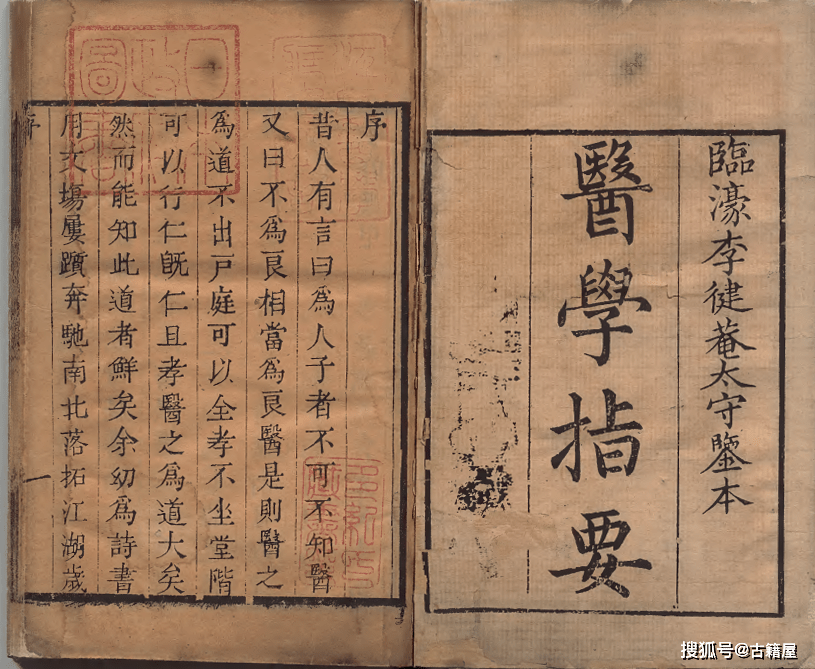 臨濠李健菴太守鑒本
醫學指要
序
昔人有言曰爲人子者不可不知醫
又曰不爲良相當爲良醫是則醫之
爲道不出戸庭可以全孝不坐堂階
可以行仁旣仁且孝醫之爲道大矣
然而能知此道者鮮矣余幼爲詩書
用文場屢躓奔馳南北落拓江湖歲
序
一
搜狐号@古籍屋